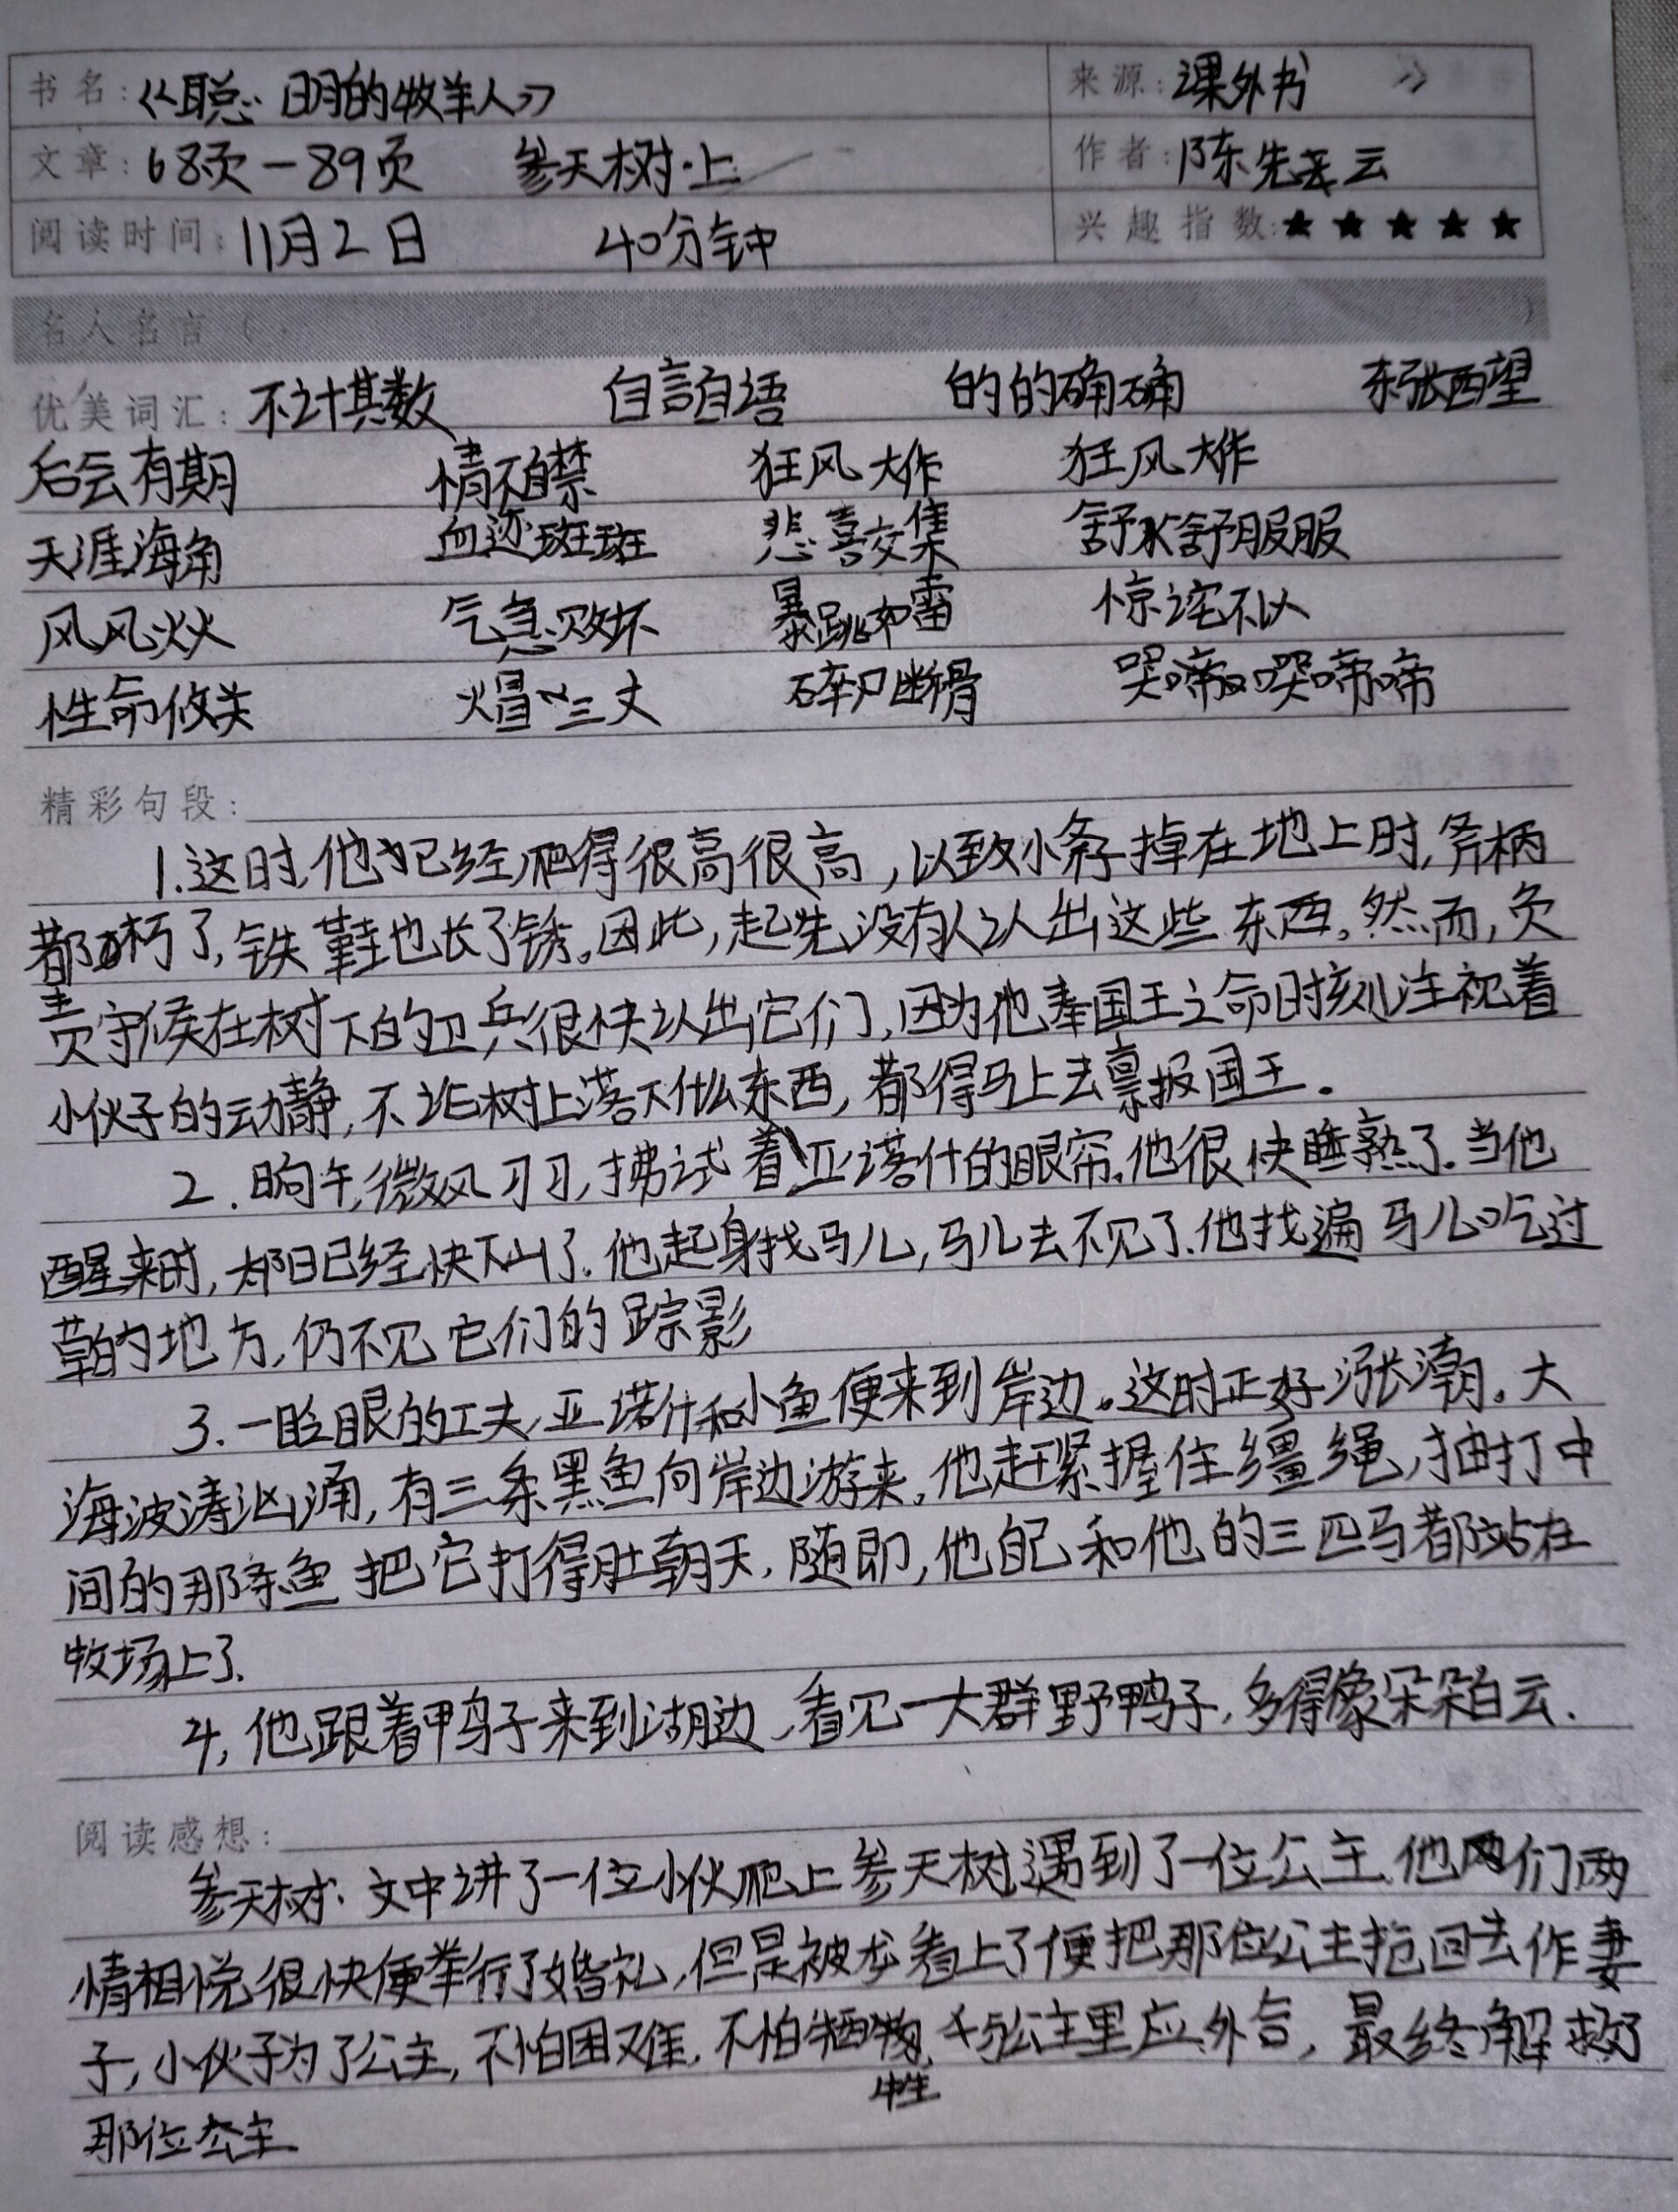 书名:《聪明的牧羊人》 来源:课外书
文章:68页-89页 参天树·上 作者:陈先云
阅读时间:11月2日 40分钟 兴趣指数:★★★★★
名人名言( )
优美词汇:不计其数 自言自语 的的确确 东张西望
后会有期 情不自禁 狂风大作 狂风大作
天涯海角 血迹斑斑 悲喜交集 舒舒服服
风风火火 气急败坏 暴跳如雷 惊诧不以
性命攸关 火冒三丈 碎尸断骨 哭啼哭啼啼
精彩句段:
1.这时,他已经爬得很高很高,以致小斧子掉在地上时,斧柄
都朽了,铁鞋也长了锈。因此,起先没有人认出这些东西。然而,负
责守候在树下的卫兵很快认出它们,因为他奉国王之命时刻注视着
小伙子的动静,不论树上落下什么东西,都得马上去禀报国王。
2.晌午,微风习习,拂试着亚诺什的眼帘.他很快睡熟了.当他
醒来时,太阳已经快下山了.他起身找马儿,马儿去不见了.他找遍马儿吃过
草的地方,仍不见它们的踪影
3.一眨眼的工夫,亚诺什和小鱼便来到岸边。这时正好涨潮。大
海波涛汹涌,有三条黑鱼向岸边游来,他赶紧握住缰绳,抽打中
间的那条鱼把它打得肚朝天,随即,他自己和他的三匹马都站在
牧场上了.
4,他跟着鸭子来到湖边,看见一大群野鸭子,多得像朵朵白云.
阅读感想:
参天树:文中讲了一位小伙爬上参天树遇到了一位公主,他们两
情相悦很快便举行了婚礼,但是被龙看上了便把那位公主抢回去作妻
子,小伙子为了公主,不怕困难,不怕牺牲,与公主里应外合,最终解救了
那位公主